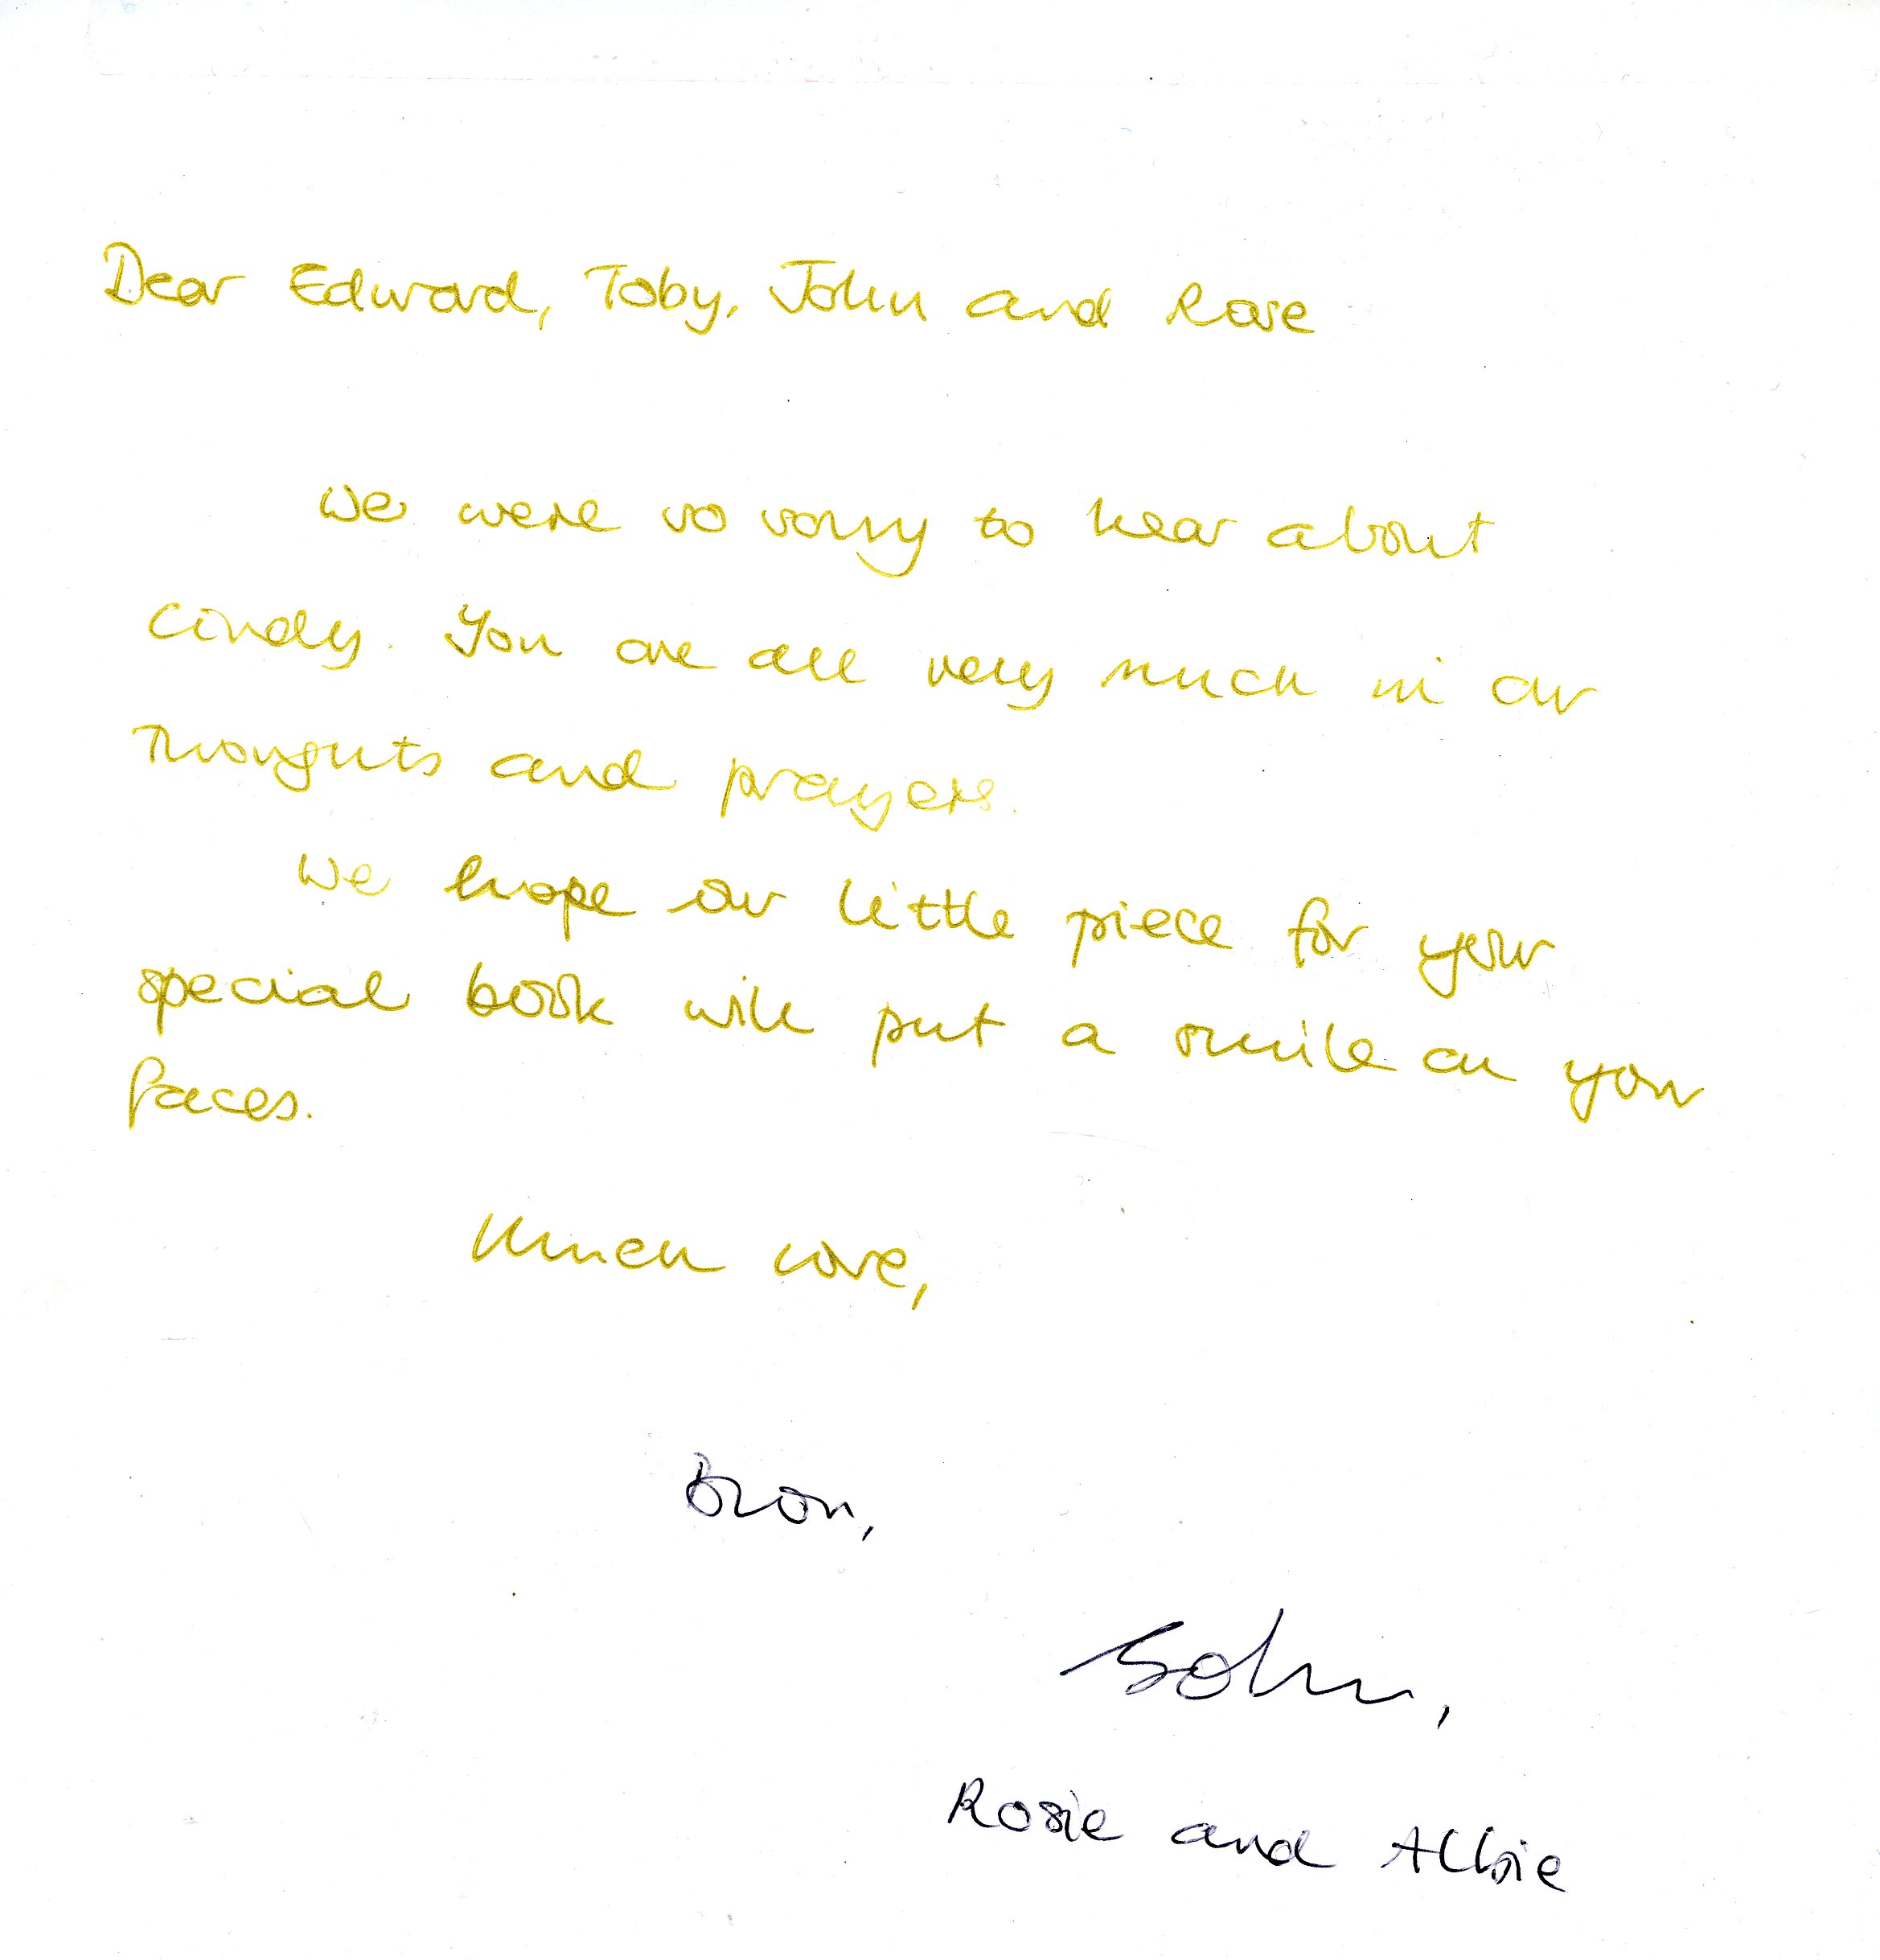 Dear Edward, Toby, John and Rose
We were so sorry to hear about
Cindy. You are all very much in our
Thoughts and prayers.
We hope our little piece for your
special book will put a smile on your
faces.
Much love,
Bron,
John,
Rosie and Albie